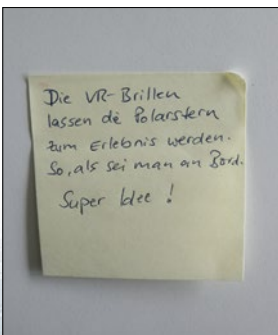 Die VR-Brillen
lassen die Polarstern
zum Erlebnis werden.
So, als sei man an Bord.
Super Idee !